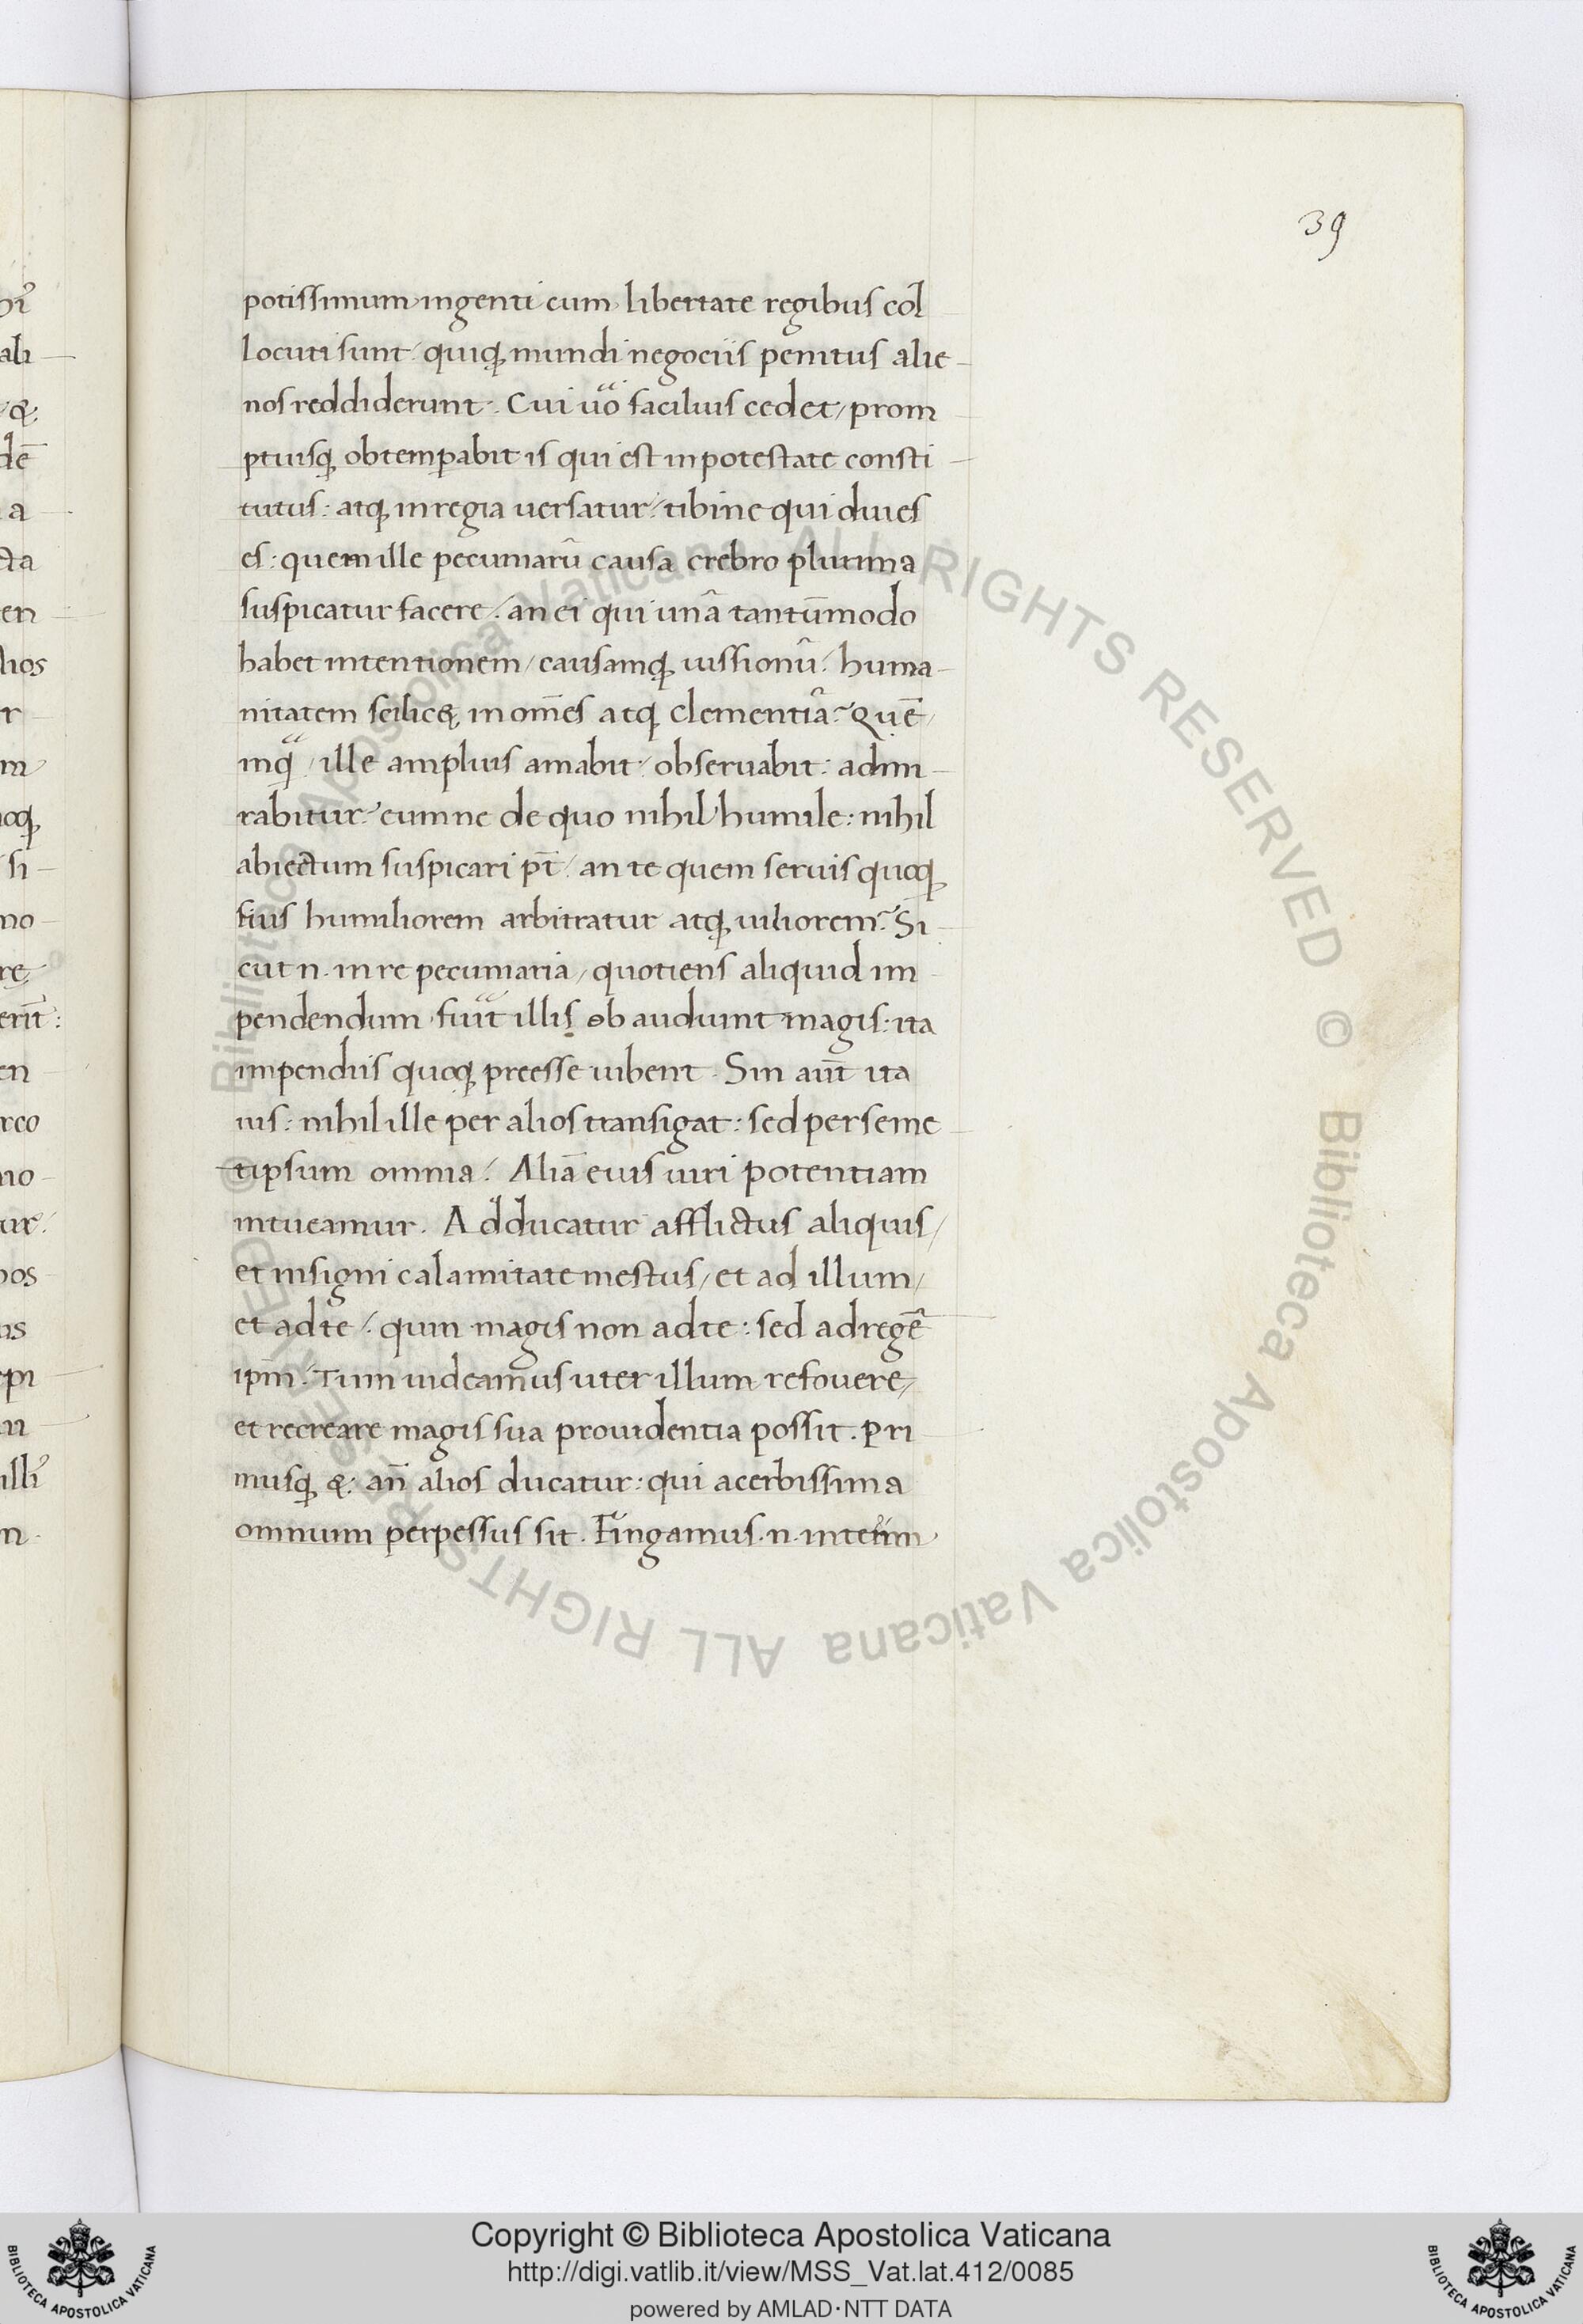 39
potissimum ingenti cum libertate regibus col
locuti sunt / quiq; mundi negociis penitus alie-
nos reddiderunt. Cui uo facilius cedet / prom
ptuisq; obtemperabit is qui est in potestate consti-
tutus: atq; in regia uersatur / tibi ne qui diues
es: quem ille pecuniarū causa crebro plurima
suspicatur facere / an ei qui unā tantūmodo
habet intentionem / causamq; iussionū / huma-
nitatem scilic& in omēs atq; clementiā? Quē
inq / ille amplius amabit / obseruabit: admi-
rabitur? eum ne de quo nihil humile: nihil
abiectum suspicari pt̄ / an te quem seruis quoq;
suis humiliorem arbitratur atq; uiliorem? Si-
cut n. in re pecuniaria / quotiens aliquid im-
pendendum fuit illis ob audiunt magis: ita
impendiis quoq; preesse iubent. Sin aūt ita
uis: nihil ille per alios transigat: sed per seme-
tipsum omnia / Aliā eius uiri potentiam
intueamur. Adducatur afflictus aliquis /
et insigni calamitate mestus / et ad illum /
et ad te / quin magis non ad te: sed ad regē
ipm̄. Tum uideamus uter illum refouere /
et recreare magis sua prouidentia possit. Pri
musq; &. an̄ alios ducatur: qui acerbissima
omnium perpessus sit. Fingamus. n. interim
Copyright © Biblioteca Apostolica Vaticana
http://digi.vatlib.it/view/MSS_Vat.lat.412/0085
powered by AMLAD·NTT DATA
BIBLIOTECA APOSTOLICA VATICANA
BIBLIOTECA APOSTOLICA VATICANA
© Biblioteca Apostolica Vaticana ALL RIGHTS RESERVED © Biblioteca Apostolica Vaticana ALL RIGHTS RESERVED